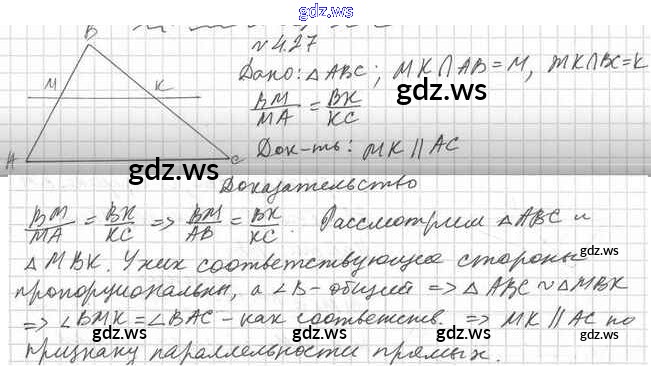 gdz.ws
№ 4.27
B
Дано: △ABC; MK∩AB=M, MK∩BC=K
M K
gdz.ws
BM/MA = BK/KC
Док-ть: MK || AC
A C
gdz.ws
Доказательство
BM/MA = BK/KC => BM/AB = BK/KC. Рассмотрим △ABC и
gdz.ws
△MBK. У них соответствующие стороны
gdz.ws
пропорциональны, а ∠B - общий => △ABC ~ △MBK
=> ∠BMK = ∠BAC - как соответств. => MK || AC по
признаку параллельности прямых.
gdz.ws
gdz.ws